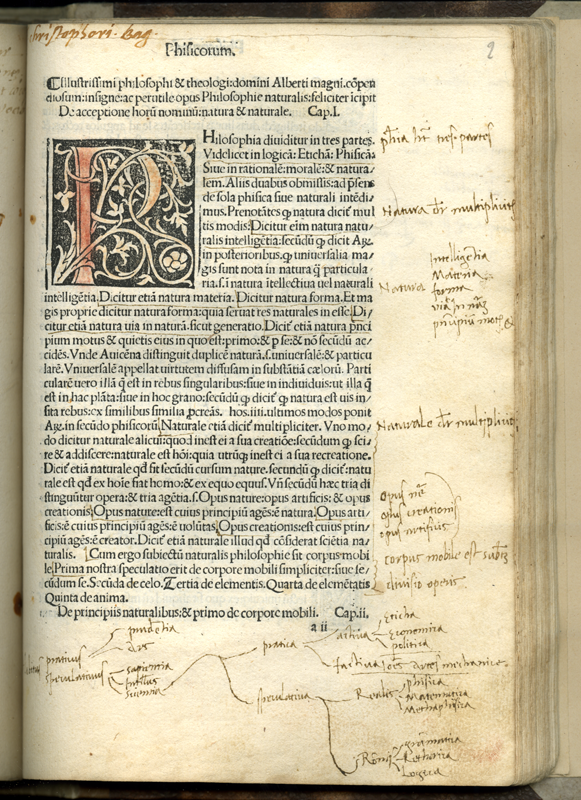 Christophori. Bag.
Phisicorum.
2
Illustrissimi philosophi & theologi: domini Alberti magni. cōpen
diosum: insigne: ac perutile opus Philosophie naturalis: feliciter icipit
De acceptione horū nominū: natura & naturale. Cap.I.
PHilosophia diuiditur in tres partes.
Videlicet in logicā: Ethicā: Phisicā:
Siue in rationalē: moralē: & natura-
lem. Aliis duabus obmissis: ad p̄sens
de sola phisica siue naturali intēdi-
mus. Prenotātes ꝙ natura dicit͛ mul
tis modis: Dicitur eīm natura natu-
ralis intelligētia: secūdū ꝙ dicit Aꝶ.
in posterioribus, ꝙ uniuersalia ma-
gis sunt nota in natura ꝗ̄ particula
ria. s. ī natura ītellectiua uel naturali
intelligētia. Dicitur etiā natura materia. Dicitur natura forma. Et ma
gis proprie dicitur natura forma: quia seruat res naturales in esse. Di
citur etiā natura uia in naturā. sicut generatio. Dicit͛ etiā natura p̄nci
pium motus & quietis eius in quo est: primo: & p̱ se: & nō secūdū ac-
cidēs. Vnde Auicēna distinguit duplicē naturā. s. uniuersalē: & particu
larē. Vniuersalē appellat uirtutem diffusam in substātia cælorū. Parti
cularē uero illā ꝗ̄ est in rebus singularibus: siue in indiuiduis: ut illa ꝗ̄
est in hac plāta: siue in hoc grano: secūdū ꝙ dicit͛ ꝙ natura est uis in-
sita rebus: ex similibus similia p̱creās. hos. iiii. ultimos modos ponit
Aꝶ. in secūdo phisicorū. Naturale etiā dicit͛ multipliciter. Vno mo-
do dicitur naturale alicui: quod inest ei a sua creatiōe: secūdum ꝙ sci-
re & addiscere: naturale est hōi: quia utrūꝙ inest ei a sua recreatione.
Dicit͛ etiā naturale qd̄ fit secūdū cursum nature. secundū ꝙ dicit͛: natu
rale est qd̄ ex hoīe fiat homo: & ex equo equus. Vn̄ secūdū hæc tria di
stinguūtur opera: & tria agētia. s. Opus nature: opus artificis: & opus
creationis. Opus nature: est cuius principiū agēs: ē natura. Opus arti-
ficis: ē cuius principiū agēs: ē uolūtas. Opus creationis: est cuius prin-
cipiū agēs: ē creator. Dicit͛ etiā naturale illud qd̄ cōsiderat sciētia na-
turalis. Cum ergo subiectū naturalis philosophie sit corpus mobi
le. Prima nostra speculatio erit de corpore mobili simpliciter: siue se/
cūdum se. Secūda de celo. Tertia de elementis. Quarta de elemētatis
Quinta de anima.
De principiis naturalibus: & primo de corpore mobili. Cap.ii.
a ii
phīa hēt tres partes
Natura dr̄ multipliciter
Natura
Intelligentia
Materia
forma
via in nāz
principium motus &
Naturale dr̄ multipliciter
opus nāe
opus creationis
opus artificis
corpus mobile est subtm̄
divisio operis
practicus
speculativus
prudentia
Ars
sapientia
scientia
pratica
activa
Ethicha
Economica
politica
factiva
artes mechanice
speculativa
Realis
phisica
Matematica
Methaphisica
gramatica
Rethorica
Logica